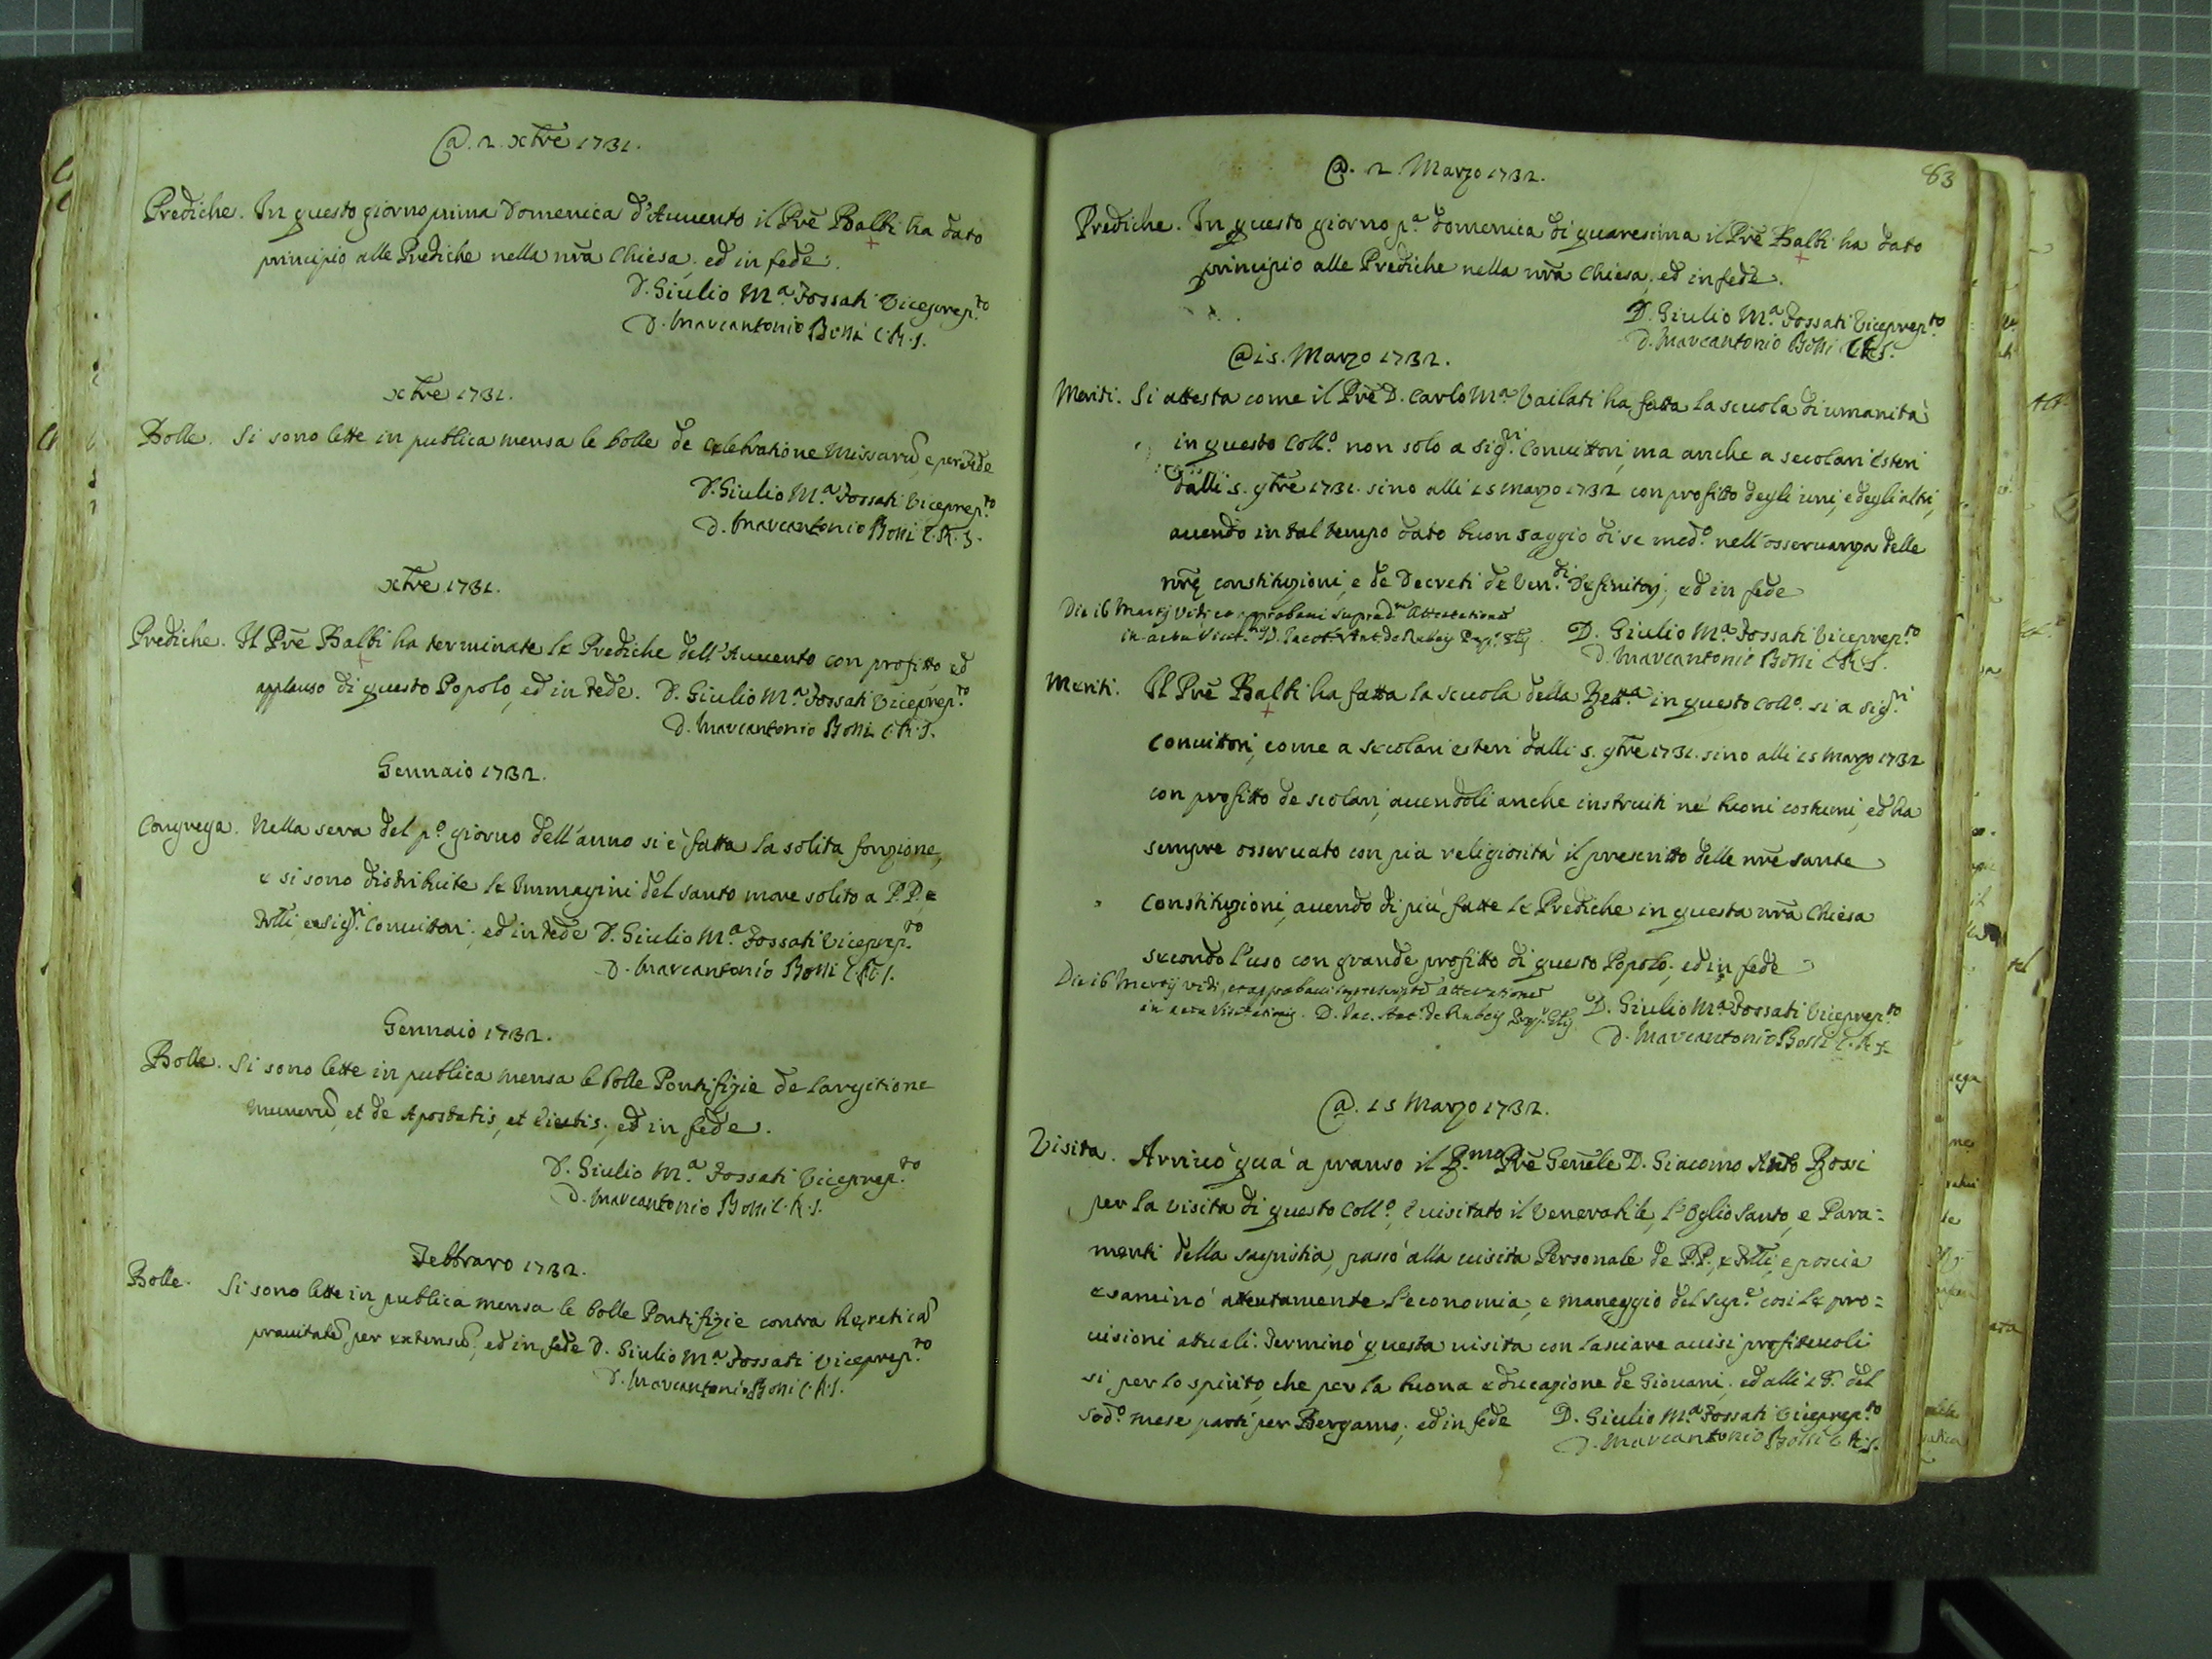 @. 2. xtre 1731.
Prediche. In questo giorno prima Domenica d'Auuento il Prē Balbi ha dato
principio alle Prediche nella nrã Chiesa; ed in fede.
D. Giulio Mª. Fossati Viceprep.to
D. Marcantonio Bossi C.R.S.
xtre 1731.
Bolle. Si sono lette in publica mensa le bolle de Celebratione Missarũ, e per fede
D. Giulio Mª. Fossati Viceprep.to
D. Marcantonio Bossi C.R.S.
xtre 1731.
Prediche. Il Prē Balbi ha terminate le Prediche dell'Auuento con profitto ed
applauso di questo Popolo, ed in fede. D. Giulio Mª. Fossati Viceprep.to
D. Marcantonio Bossi C.R.S.
Gennaio 1732.
Congrega. Nella sera del p.º giorno dell'anno si è fatta la solita fonzione,
e si sono distribuite le Immagini del santo more solito a P.P. e
Frlli, e a Sig.ri Conuittori; ed in fede D. Giulio Mª. Fossati Viceprep.to
D. Marcantonio Bossi C.R.S.
Gennaio 1732.
Bolle. Si sono lette in publica mensa le bolle Pontifizie de largitione
munerũ, et de Apostatis, et Eiectis; ed in fede.
D. Giulio Mª. Fossati Viceprep.to
D. Marcantonio Bossi C.R.S.
Febbraro 1732.
Bolle. Si sono lette in publica mensa le bolle Pontifizie contra hęreticã
prauitatẽ per extensũ; ed in fede D. Giulio Mª. Fossati Viceprep.to
D. Marcantonio Bossi C.R.S.
83
@. 2. Marzo 1732.
Prediche. In questo giorno p.ª domenica di quaresima il Prē Balbi ha dato
principio alle Prediche nella nrã Chiesa; ed in fede.
D. Giulio Mª. Fossati Viceprep.to
D. Marcantonio Bossi C.R.S.
@ 15. Marzo 1732.
Meriti. Si attesta come il Prē D. Carlo Mª. Vailati ha fatta la scuola di umanità
in questo Coll.º non solo a Sig.ri Conuittori, ma anche a secolari esteri
dalli 5. 9tre 1731. sino alli 15 marzo 1732 con profitto degli uni, e degli altri,
auendo in tal tempo dato buon saggio di se med.º nell'osseruanza delle
nrę constituzioni, e de Decreti de Ven.di Definitorj; ed in fede
Die 16 Martij vidi, ex approbaui suprad.m attestationẽ
in actu Visit.nis D. Jacob. Ant. de Rubeis Prep.s Glis. D. Giulio Mª. Fossati Viceprep.to
D. Marcantonio Bossi C.R.S.
Meriti. Il Prē Balbi ha fatta la scuola della Rett.ca in questo Coll.º si a Sig.ri
Conuittori, come a secolari esteri dalli 5. 9tre 1731. sino alli 15 marzo 1732
con profitto de scolari, auendoli anche instruiti ne' buoni costumi, ed ha
sempre osseruato con pia religiosità il prescritto delle nrē sante
Constituzioni, auendo di più fatte le Prediche in questa nrã Chiesa
secondo l'uso con grande profitto di questo Popolo; ed in fede
Die 16 Martij vidi, et approbaui suprascriptã attestationẽ
in actu Visitationis. D. Jac. Ant. de Rubeis Prep.s Glis. D. Giulio Mª. Fossati Viceprep.to
D. Marcantonio Bossi C.R.S.
@. 15 Marzo 1732.
Visita. Arriuò quà a pranso il R.mo Prē Genēle D. Giacomo Anto Rossi
per la visita di questo Coll.º, e uisitato il Venerabile, l'Oglio Santo, e Para=
menti della sagristia, passò alla uisita Personale de P.P., e Frlli, e poscia
esaminò attentamente l'economia, e maneggio del Sup.e cosi le pro=
uisioni attuali. Terminò questa uisita con lasciare auisi profiteuoli
si per lo spirito, che per la buona educazione de Giouani. ed alli 18. del
sod.º mese parti per Bergamo; ed in fede D. Giulio Mª. Fossati Viceprep.to
D. Marcantonio Bossi C.R.S.